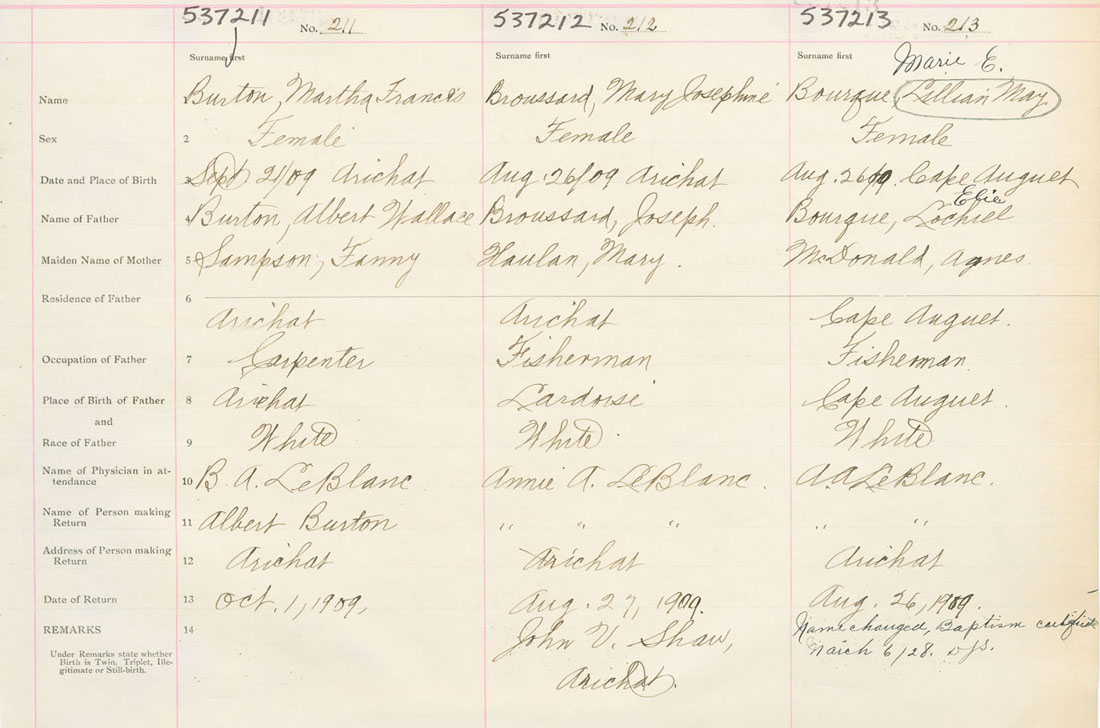 537211 No. 211 537212 No. 212 537213 No. 213
Surname first Surname first Surname first Marie E.
Name Burton, Martha Francis Broussard, Mary Josephine Bourque, Lillian May
Sex 2 Female Female Female
Date and Place of Birth 3 Sept 21/09 Arichat Aug. 26/09 Arichat Aug. 26/09. Cape Auguet
Elie
Name of Father 4 Burton, Albert Wallace Broussard, Joseph. Bourque, Lochiel
Maiden Name of Mother 5 Sampson, Fanny Haulan, Mary. McDonald, Agnes.
Residence of Father 6
Arichat Arichat Cape Auguet.
Occupation of Father 7 Carpenter Fisherman Fisherman.
Place of Birth of Father 8 Arichat Lardoise Cape Auguet.
and
Race of Father 9 White White White
Name of Physician in at-
tendance 10 B. A. LeBlanc Annie A. LeBlanc. A. A. LeBlanc.
Name of Person making
Return 11 Albert Burton " " " " "
Address of Person making
Return 12 Arichat Arichat Arichat
Date of Return 13 Oct. 1, 1909, Aug. 27, 1909. Aug. 26, 1909.
REMARKS 14 John V. Shaw, Name changed, Baptism certificate
Under Remarks state whether March 6/28. DJS.
Birth is Twin, Triplet, Ille-
gitimate or Still-birth.
Arichat.